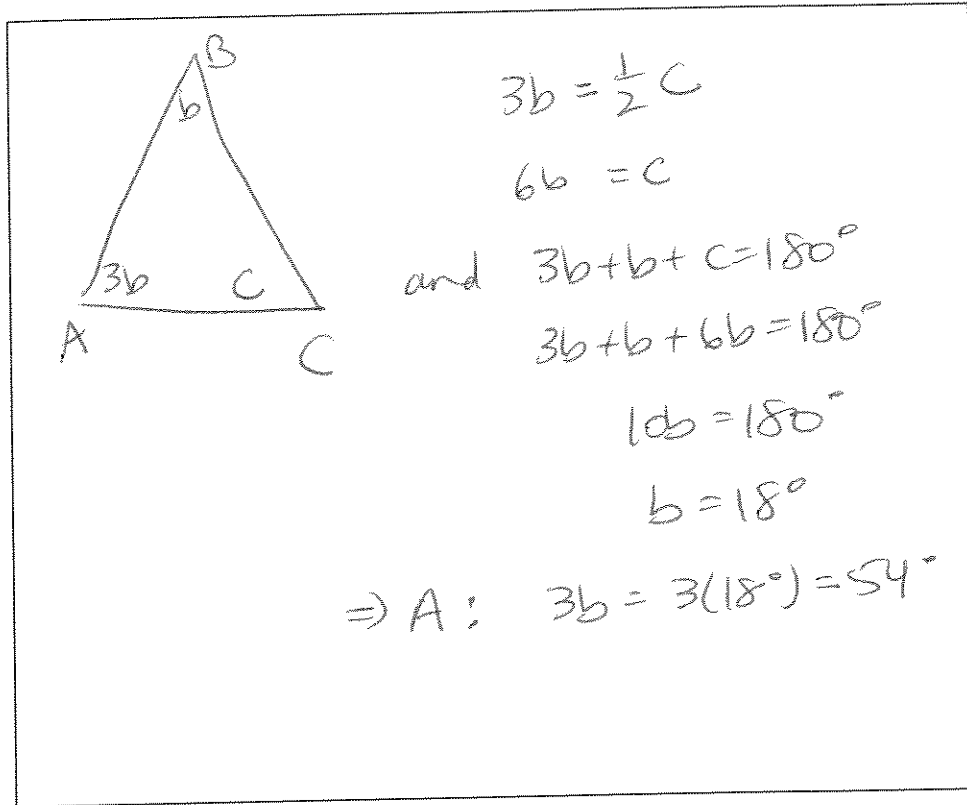 B
b
3b
C
A
C
3b = 1/2 C
6b = C
and 3b+b+C=180°
3b+b+6b=180°
10b=180°
b=18°
⇒ A: 3b = 3(18°) = 54°